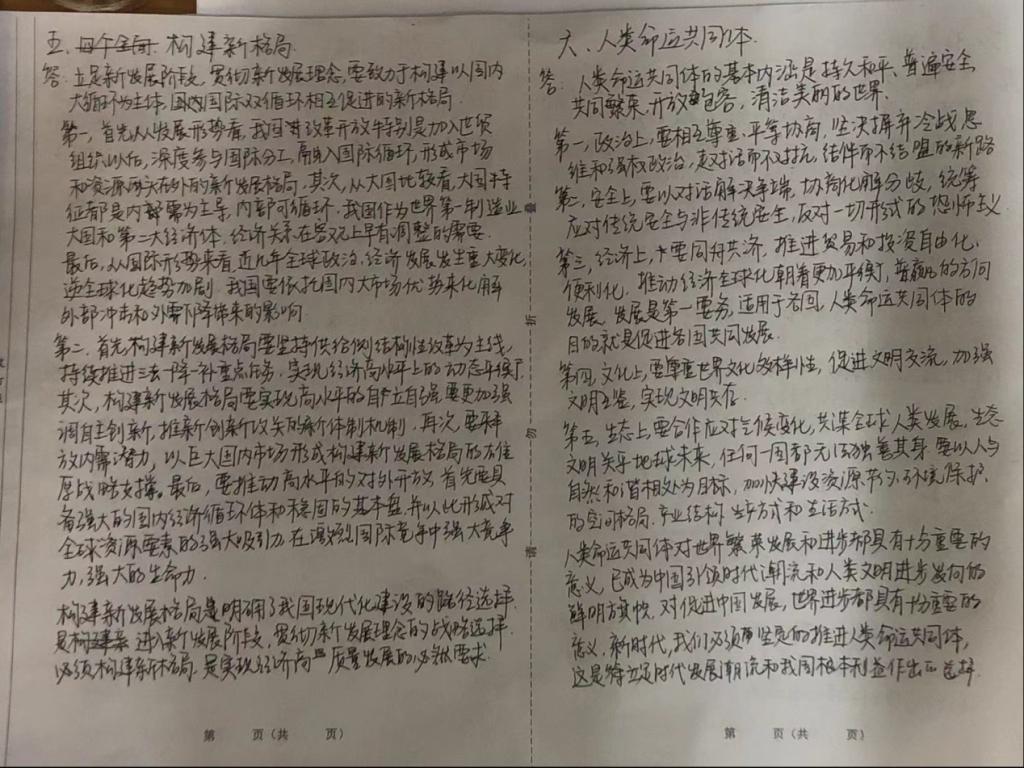 五、四个全面 构建新格局
答：立足新发展阶段，贯彻新发展理念，要致力于构建以国内
大循环为主体，国内国际双循环相互促进的新格局.
第一，首先从发展形势看，我国进改革开放特别是加入世贸
组织以后，深度参与国际分工，融入国际循环，形成市场
和资源两头在外的新发展格局. 其次，从大国比较看，大国特
征都是内部需为主导，内部可循环，我国作为世界第一制造业
大国和第二大经济体，经济关系在客观上早有调整的需要.
最后，从国际形势来看，近几年全球政治、经济发展发生重大变化
逆全球化趋势加剧，我国要依托国内大市场优势来化解
外部冲击和外需下降带来的影响.
第二，首先构建新发展格局要坚持供给侧结构性改革为主线，
持续推进三去一降一补重点任务，实现经济高水平上的动态平衡.
其次，构建新发展格局要实现高水平的自立自强，要更加强
调自主创新，推新创新攻关的新体制机制. 再次，要释
放内需潜力，以巨大国内市场形成构建新发展格局的
厚战略支撑. 最后，要推动高水平的对外开放，首先要具
备强大的国内经济循环体和稳固的基本盘，并以此形成对
全球资源要素的强大吸引力，在激烈国际竞争中强大竞争
力，强大的生命力.
构建新发展格局是明确了我国现代化建设的路径选择.
是 进入新发展阶段，贯彻新发展理念的战略选择.
必须构建新格局，是实现经济高 质量发展的必然要求.
第 页（共 页）
请勿折叠
六、人类命运共同体.
答：人类命运共同体的基本内涵是持久和平、普遍安全
共同繁荣、开放包容，清洁美丽的世界.
第一，政治上，要相互尊重、平等协商，坚决摒弃冷战思
维和强权政治，走对话而不对抗，结伴而不结盟的新路
第二，安全上，要以对话解决争端，协商化解分歧，统筹
应对传统安全与非传统安全，反对一切形式的恐怖主义
第三，经济上，要同舟共济，推进贸易和投资自由化、
便利化，推动经济全球化朝着更加平衡，普赢的方向
发展. 发展是第一要务，适用于各国，人类命运共同体的
目的就是促进各国共同发展.
第四，文化上，要尊重世界文化多样性，促进文明交流，加强
文明互鉴，实现文明共存.
第五，生态上，要合作应对气候变化，共谋全球人类发展，生态
文明关乎地球未来，任何一国都无法独善其身，要以人与
自然和谐相处为目标，加快建设资源节约、环境保护、
的空间格局、产业结构、生产方式和生活方式.
人类命运共同体对世界繁荣发展和进步都具有十分重要的
意义，已成为中国引领时代潮流和人类文明进步方向的
鲜明旗帜，对促进中国发展，世界进步都具有十分重要的
意义，新时代，我们必须坚定的推进人类命运共同体，
这是 立足时代发展潮流和我国根本利益作出的选择.
第 页（共 页）